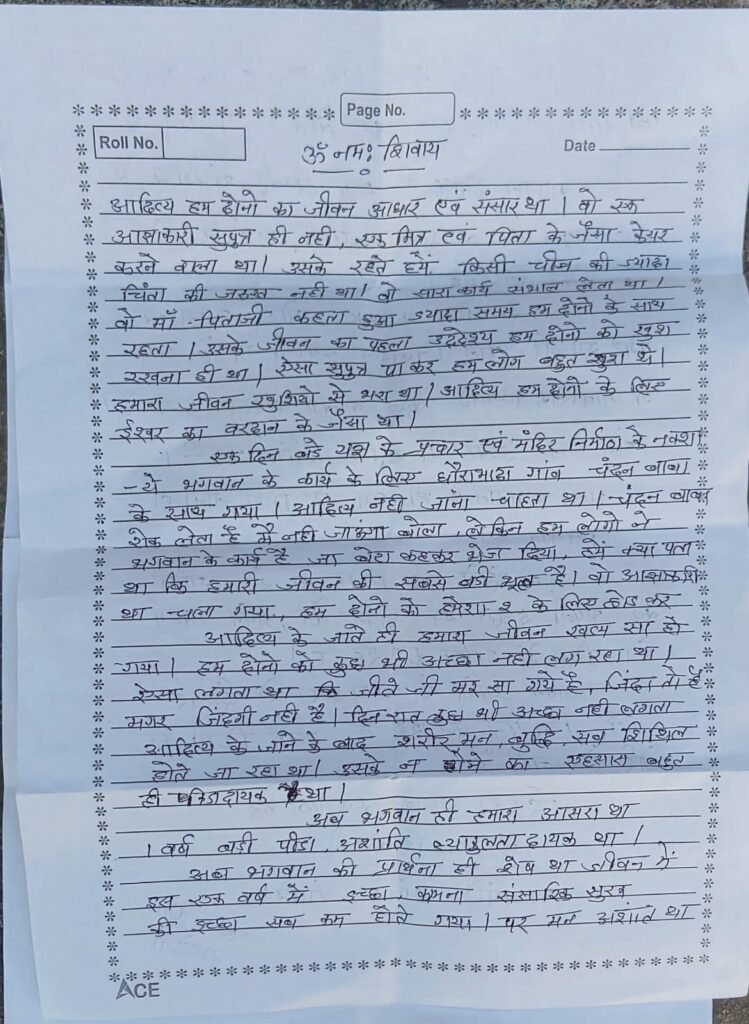 Page No.
Roll No.
ॐ नमः शिवाय
Date
आदित्य हम दोनो का जीवन आधार एवं संसार था । वो एक
आज्ञाकारी सुपुत्र ही नही, एक मित्र एवं पिता के जैसा केयर
करने वाला था। उसके रहते हमें किसी चीज की ज्यादा
चिंता की जरुरत नही था। वो सारा कार्य संभाल लेता था ।
वो माँ-पिताजी कहता हुआ ज्यादा समय हम दोनो के साथ
रहता । उसके जीवन का पहला उद्देश्य हम दोनो को खुश
रखना ही था। ऐसा सुपुत्र पा कर हम लोग बहुत खुश थे।
हमारा जीवन खुशियो से भरा था। आदित्य हम दोनो के लिए
ईश्वर का वरदान के जैसा था।
एक दिन बडे यज्ञ के प्रचार एवं मंदिर निर्माण के नक्शा
- ये भगवान के कार्य के लिए धौराभाठा गांव चंदन बाबा
के साथ गया । आदित्य नही जाना चाहता था । चंदन बाबा
रोक लेता है मै नही जाऊंगा बोला, लेकिन हम लोगो ने
भगवान के कार्य है जा बेटा कहकर भेज दिया, हमें क्या पता
था कि हमारी जीवन की सबसे बडी भूल है। वो आज्ञाकारी
था चला गया, हम दोनो को हमेशा २ के लिए छोड कर
आदित्य के जाते ही हमारा जीवन खत्म सा हो
गया । हम दोनो को कुछ भी अच्छा नही लग रहा था ।
ऐसा लगता था कि जीते जी मर सा गये है, जिंदा तो है
मगर जिंदगी नही है। दिन रात कुछ भी अच्छा नही लगता
आदित्य के जाने के बाद शरीर, मन, बुद्धि, सब शिथिल
होते जा रहा था। उसके न होने का एहसास बहुत
ही था ।
अब भगवान ही हमारा आसरा था
1 वर्ष बडी पीडा, अशांति व्याकुलता दायक था ।
अब भगवान की प्रार्थना ही शेष था जीवन में
इस एक वर्ष में इच्छा, कमना संसारिक सुख
की इच्छा सब कम होते गया । पर मन अशांत था
ACE